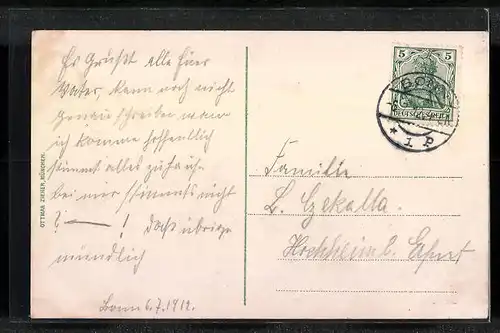 Es Grüßt alle Euer
Vater, kann noch nicht
genau schreiben wann
ich komme hoffentlich
stimmt alles zu Hause
bei mir stimmts nicht
? — ! Das übrige
mündlich
Bonn 6.7.1912.
OTTMAR ZIEHER, MÜNCHEN.
5 5
DEUTSCHES REICH
BONN
* 1 P
Familie
L. Czekalla
Hochheim b. Erfurt